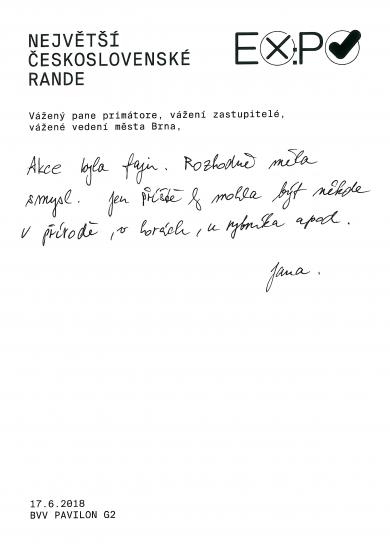 NEJVĚTŠÍ
ČESKOSLOVENSKÉ
RANDE
EXPO
Vážený pane primátore, vážení zastupitelé,
vážené vedení města Brna,
Akce byla fajn. Rozhodně měla
smysl. Jen příště by mohla být někde
v přírodě, v horách, u rybníka apod.
Jana.
17.6.2018
BVV PAVILON G2